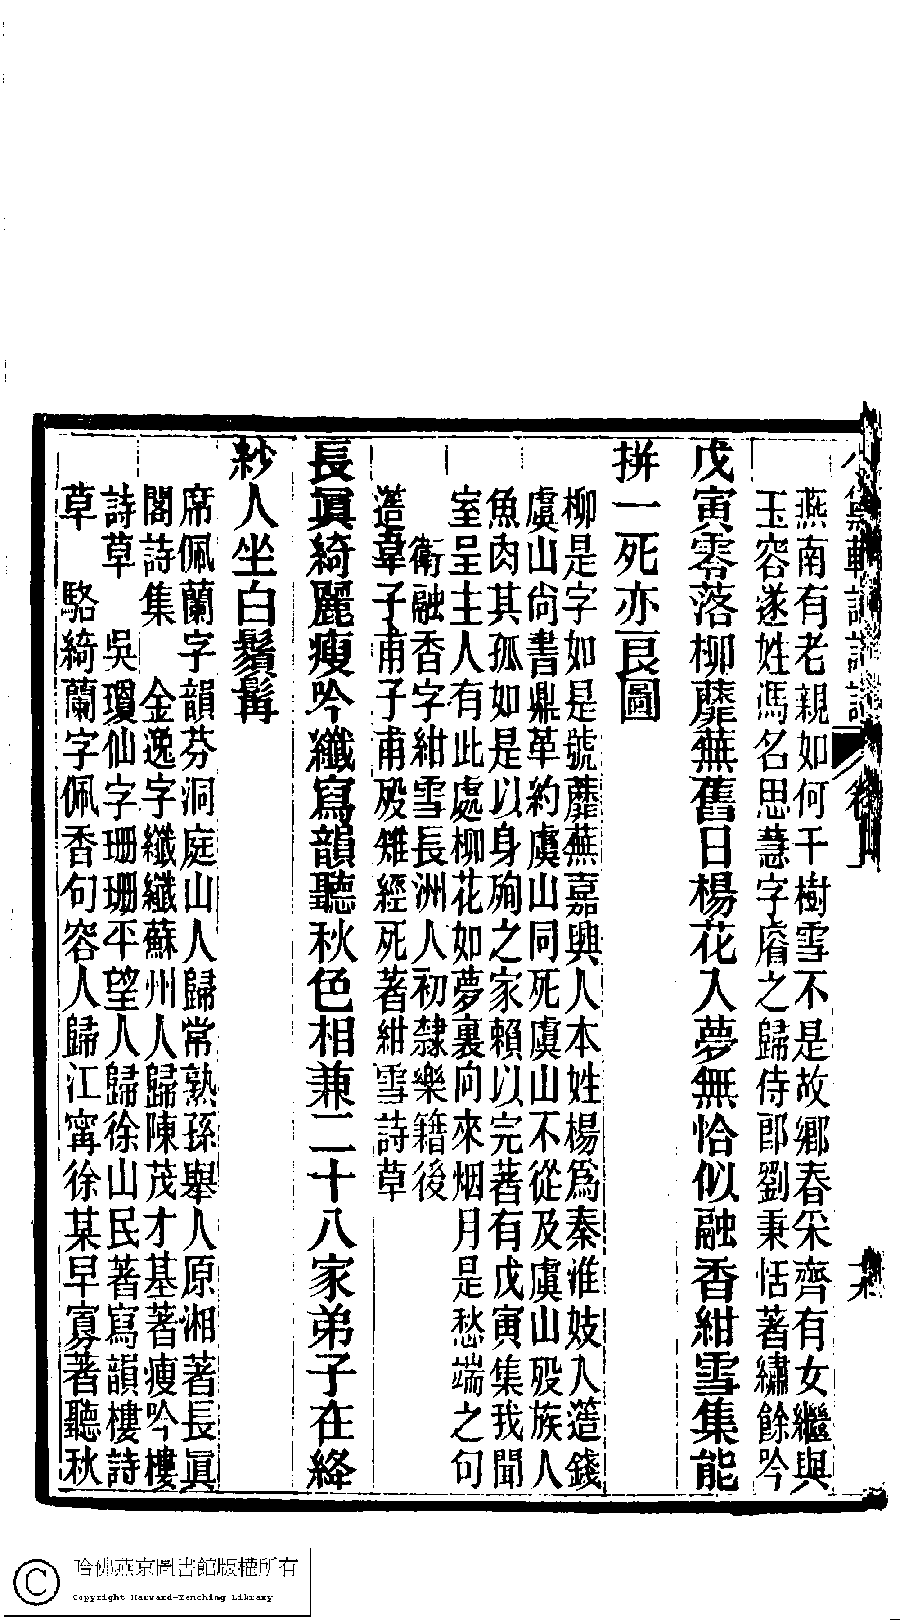 燕南有老親如何千樹雪不是故鄉春采齊有女繼與
玉容遂姓馮名思慧字睿之歸侍郎劉秉恬著繡餘吟
戊寅零落柳蘼蕪舊日楊花入夢無恰似融香紺雪集能
拼一死亦艮圖
柳是字如是號蘼蕪嘉興人本姓楊爲秦淮妓入簉錢
虞山尚書鼎革約虞山同死虞山不從及虞山歿族人
魚肉其孤如是以身殉之家賴以完著有戊寅集我聞
室呈主人有此處柳花如夢裏向來烟月是愁端之句
衛融香字紺雪長洲人初隸樂籍後
簉韋子甫子甫歿雉經死著紺雪詩草
長眞綺麗瘦吟纖寫韻聽秋色相兼二十八家弟子在絳
紗人坐白鬚髯
席佩蘭字韻芬洞庭山人歸常熟孫舉人原湘著長眞
閣詩集　金逸字纖纖蘇州人歸陳茂才基著瘦吟樓
詩草　吳瓊仙字珊珊平望人歸徐山民著寫韻樓詩
草　駱綺蘭字佩香句容人歸江甯徐某早寡著聽秋
哈佛燕京圖書館版權所有
Copyright Harvard-Yenching Library